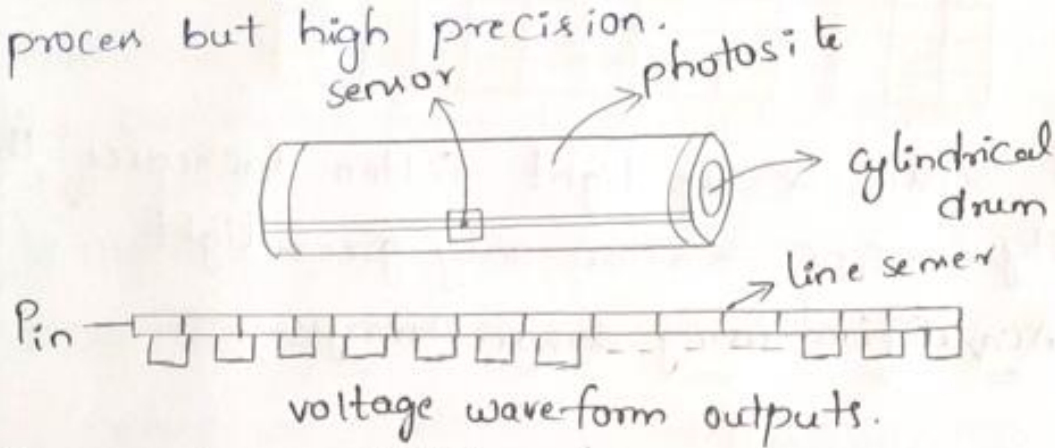 process but high precision.
sensor
photosite
cylindrical
drum
line sensor
Pin
voltage waveform outputs.